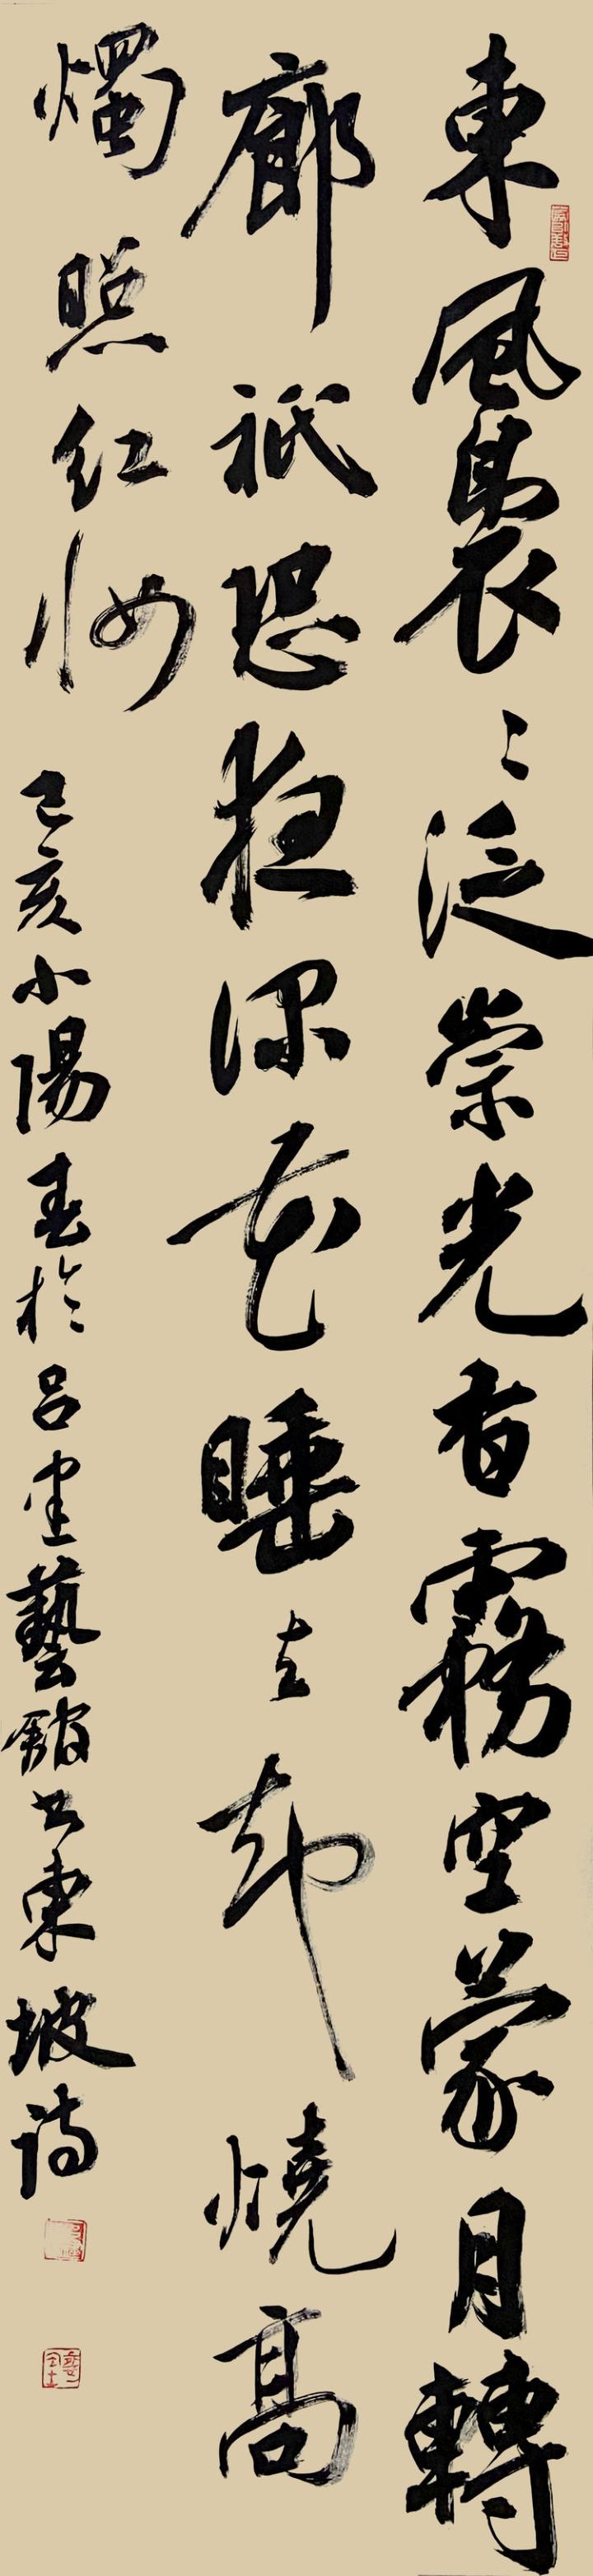 東風裊〻泛崇光香霧空蒙月轉
廊祇恐夜深花睡去却燒高
燭照红妝
己亥小陽春於吕堂藝館书東坡詩